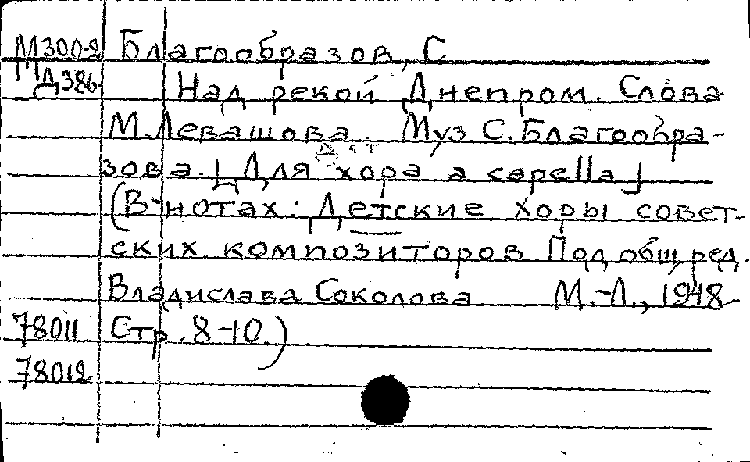 М300-2 Благообразов, С
МД386 Над рекой Днепром. Слова
М. Левашова. Муз С. Благообра-
зова. [Для хора a capella]
(В нотах: Детские хоры совет-
ских композиторов Под общ, ред.
Владислава Соколова М.-Л., 1948
78011 Стр. 8-10.)
78012